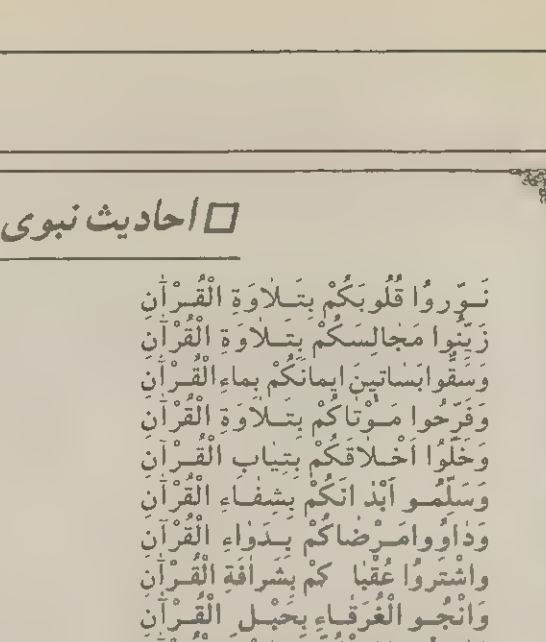 احادیث نبوی
نَوِّروُا قُلُوبَكُمْ بِتَلاٰوَةِ الْقُرْآنِ
زَيِّنُوا مَجٰالِسَكُمْ بِتَلاٰوَةِ الْقُرْآنِ
وَسَقُّوابَسٰاتينَ ايمانَكُمْ بِماءِ الْقُرْآنِ
وَفَرِّحُوا مَوْتٰاكُمْ بِتَلاٰوَةِ الْقُرْآنِ
وَحَلُّوُا اَخْلاٰقَكُمْ بِتِيٰابِ الْقُرْآنِ
وَسَلِّمُو اَبْدٰانَكُمْ بِشِفٰاءِ الْقُرْآنِ
وَدٰاوُوامَرْضٰاكُمْ بِدَوٰاءِ الْقُرْآنِ
واشْتَروُا عُقْبٰا كمْ بِشَرٰافَةِ الْقُرْآنِ
وَانْجُو الْغُرَقٰاءِ بِحَبْلِ الْقُرْآنِ